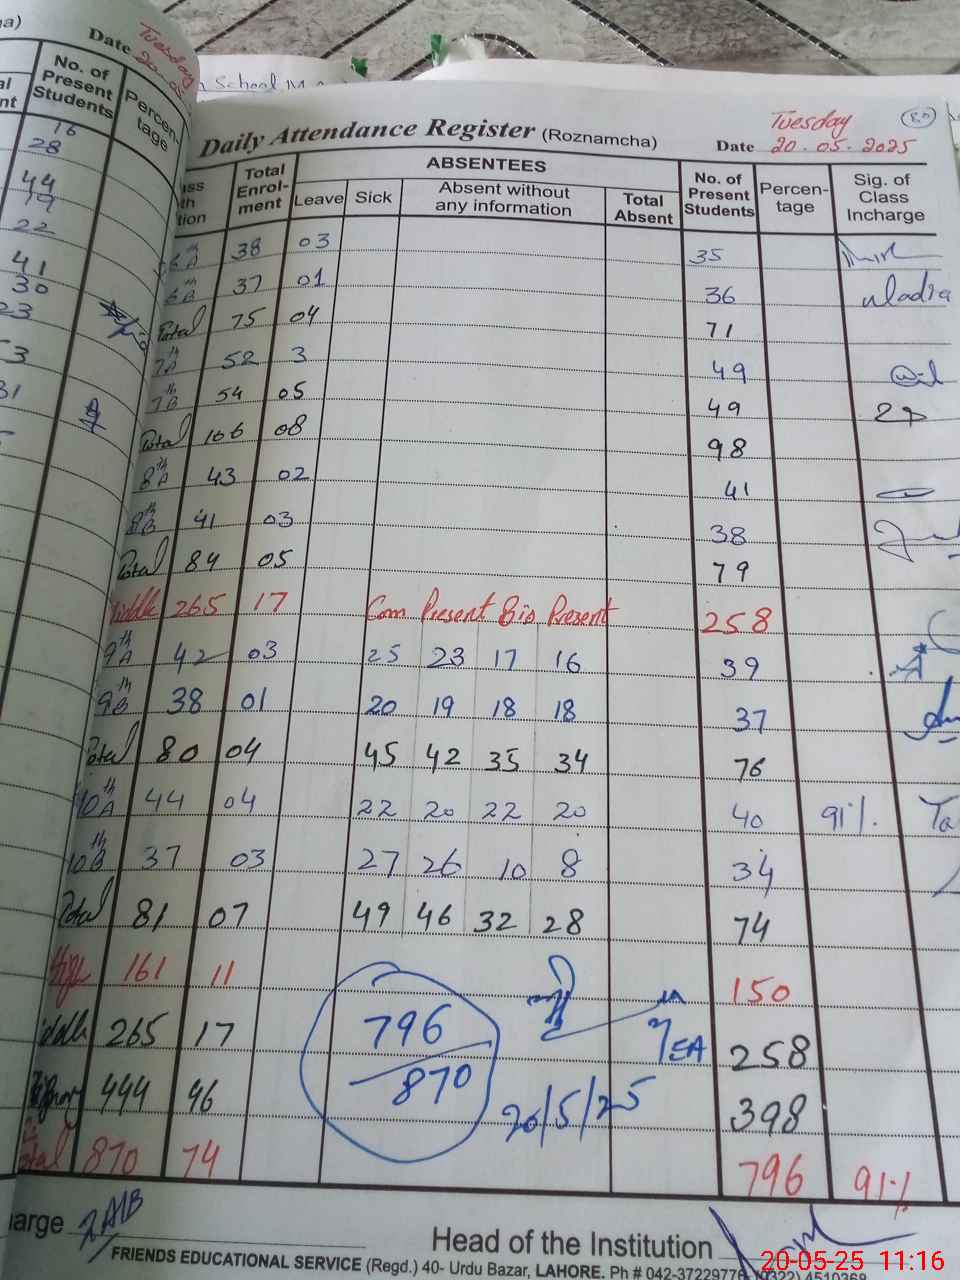 Date Tuesday
No. of
Present
Students
Percen-
tage
16
28
44
19
22
41
30
23
School
Daily Attendance Register (Roznamcha)
Tuesday
Date 20.05.2025
80
Total
Enrol-
ment
ABSENTEES
Leave Sick Absent without
any information Total
Absent
No. of
Present
Students
Percen-
tage
Sig. of
Class
Incharge
6th A 38 03 35
6th B 37 01 36
Total 75 04 71
7th A 52 3 49
7th B 54 05 49
Total 106 08 98
8th A 43 02 41
8th B 41 03 38
Total 84 05 79
Middle 265 17 Com Present Bio Present 258
9th A 42 03 25 23 17 16 39
9th B 38 01 20 19 18 18 37
Total 80 04 45 42 35 34 76
10th A 44 04 22 20 22 20 40 91%
10th B 37 03 27 26 10 8 34
Total 81 07 49 46 32 28 74
High 161 11 150
iddle 265 17 258
444 46 398
796
870
20/5/25
Total 870 74 796 91%
arge
Head of the Institution
FRIENDS EDUCATIONAL SERVICE (Regd.) 40- Urdu Bazar, LAHORE. Ph # 042-37229776
20-05-25 11:16